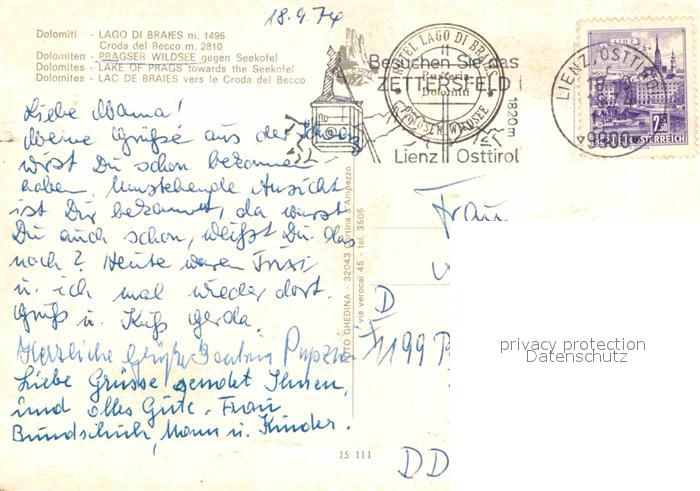 18.9.74
Dolomiti - LAGO DI BRAIES m. 1496
Croda del Becco m. 2810
Dolomiten - PRAGSER WILDSEE gegen Seekofel
Dolomites - LAKE OF PRAGS towards the Seekofel
Dolomites - LAC DE BRAIES vers le Croda del Becco
Besuchen Sie das
ZETTERSFELD
1820 m
Lienz Osttirol
HOTEL LAGO DI BRAIES
Pusteria
Dolomiti
PRAGSER WILDSEE
LIENZ, OSTTIROL
9900
LINZ
2.50
REPUBLIK ÖSTERREICH
Liebe Mama!
Meine Grüße aus der Schweiz
wirst Du schon bekommen
haben. Umstehende Ansicht
ist Dir bekannt, da warst
Du auch schon, weißt Du das
noch? Heute waren Trixi
u. ich mal wieder dort.
Gruß u. Kuß Gerda.
Herzliche Grüße
Liebe Grüsse sendet Ihnen,
und alles Gute. Frau
Bundschuh, Mann u. Kinder.
FOTO GHEDINA - 32043 Cortina d'Ampezzo
via verocai 45 - tel. 3505
15 111
Frau
D
1199
DD
privacy protection
Datenschutz